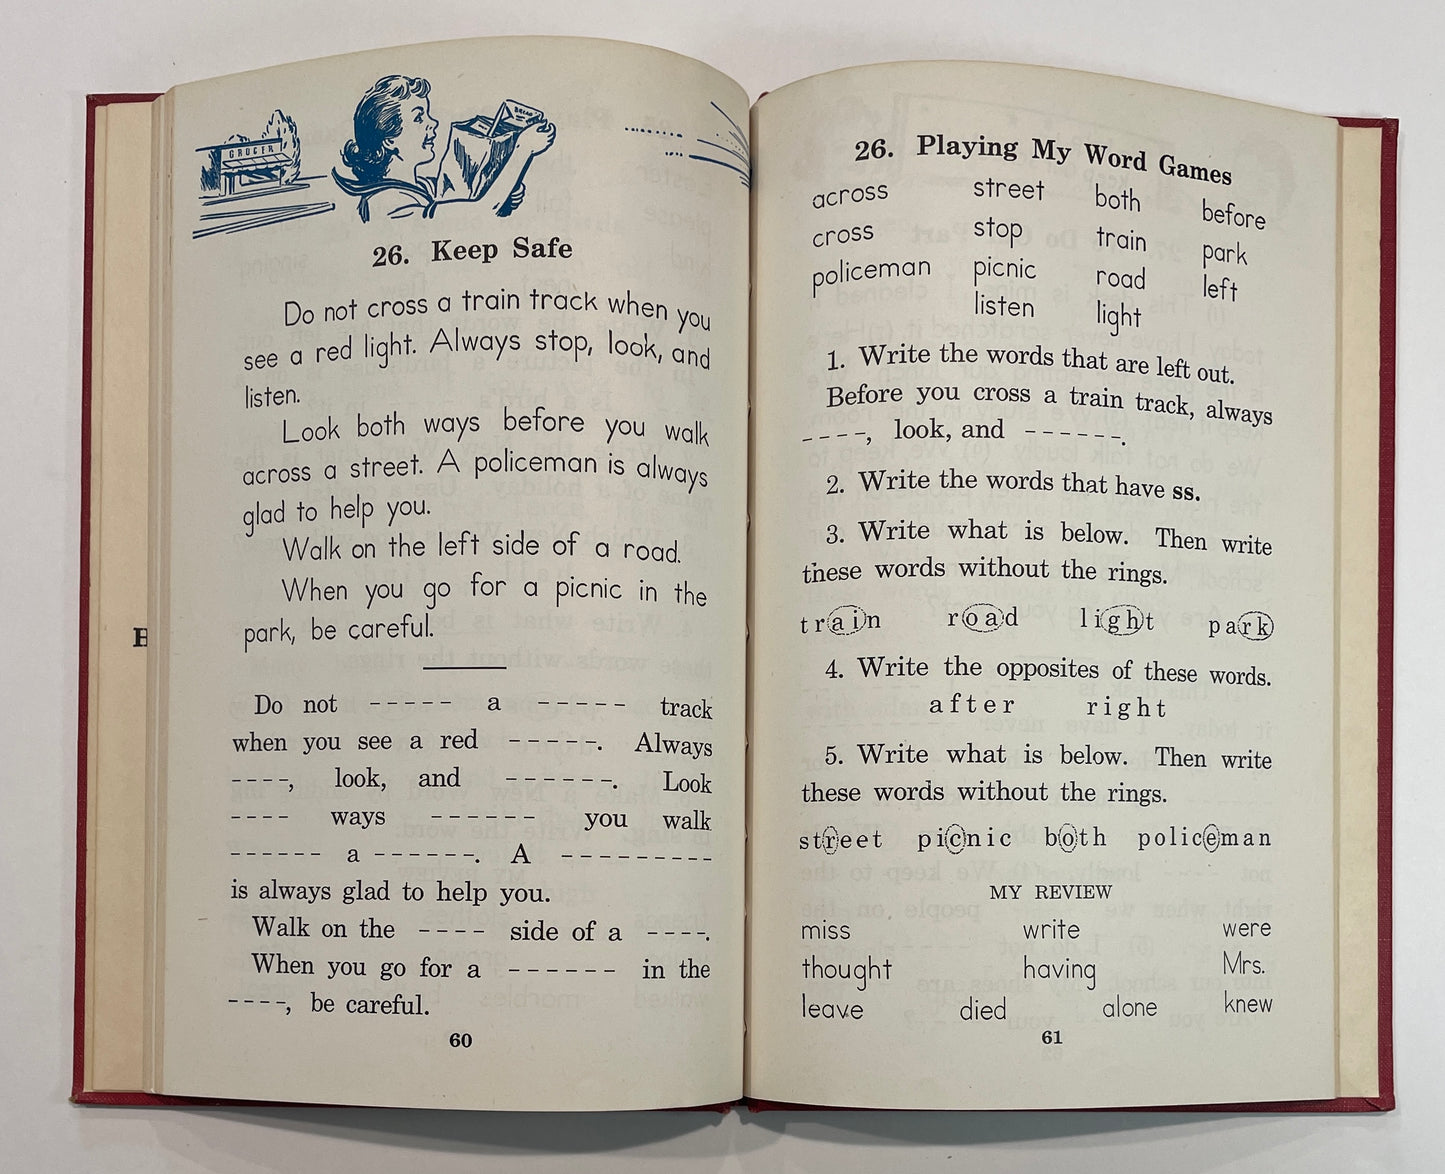 GROCER
BREAD
26. Keep Safe
Do not cross a train track when you
see a red light. Always stop, look, and
listen.
Look both ways before you walk
across a street. A policeman is always
glad to help you.
Walk on the left side of a road.
When you go for a picnic in the
park, be careful.
Do not ----- a ----- track
when you see a red -----. Always
----, look, and ------. Look
---- ways ------ you walk
------ a ------. A ---------
is always glad to help you.
Walk on the ---- side of a ----.
When you go for a ------ in the
----, be careful.
60
26. Playing My Word Games
across street both before
cross stop train park
policeman picnic road left
listen light
1. Write the words that are left out.
Before you cross a train track, always
----, look, and ------.
2. Write the words that have ss.
3. Write what is below. Then write
these words without the rings.
train road light park
4. Write the opposites of these words.
after right
5. Write what is below. Then write
these words without the rings.
street picnic both policeman
MY REVIEW
miss write were
thought having Mrs.
leave died alone knew
61